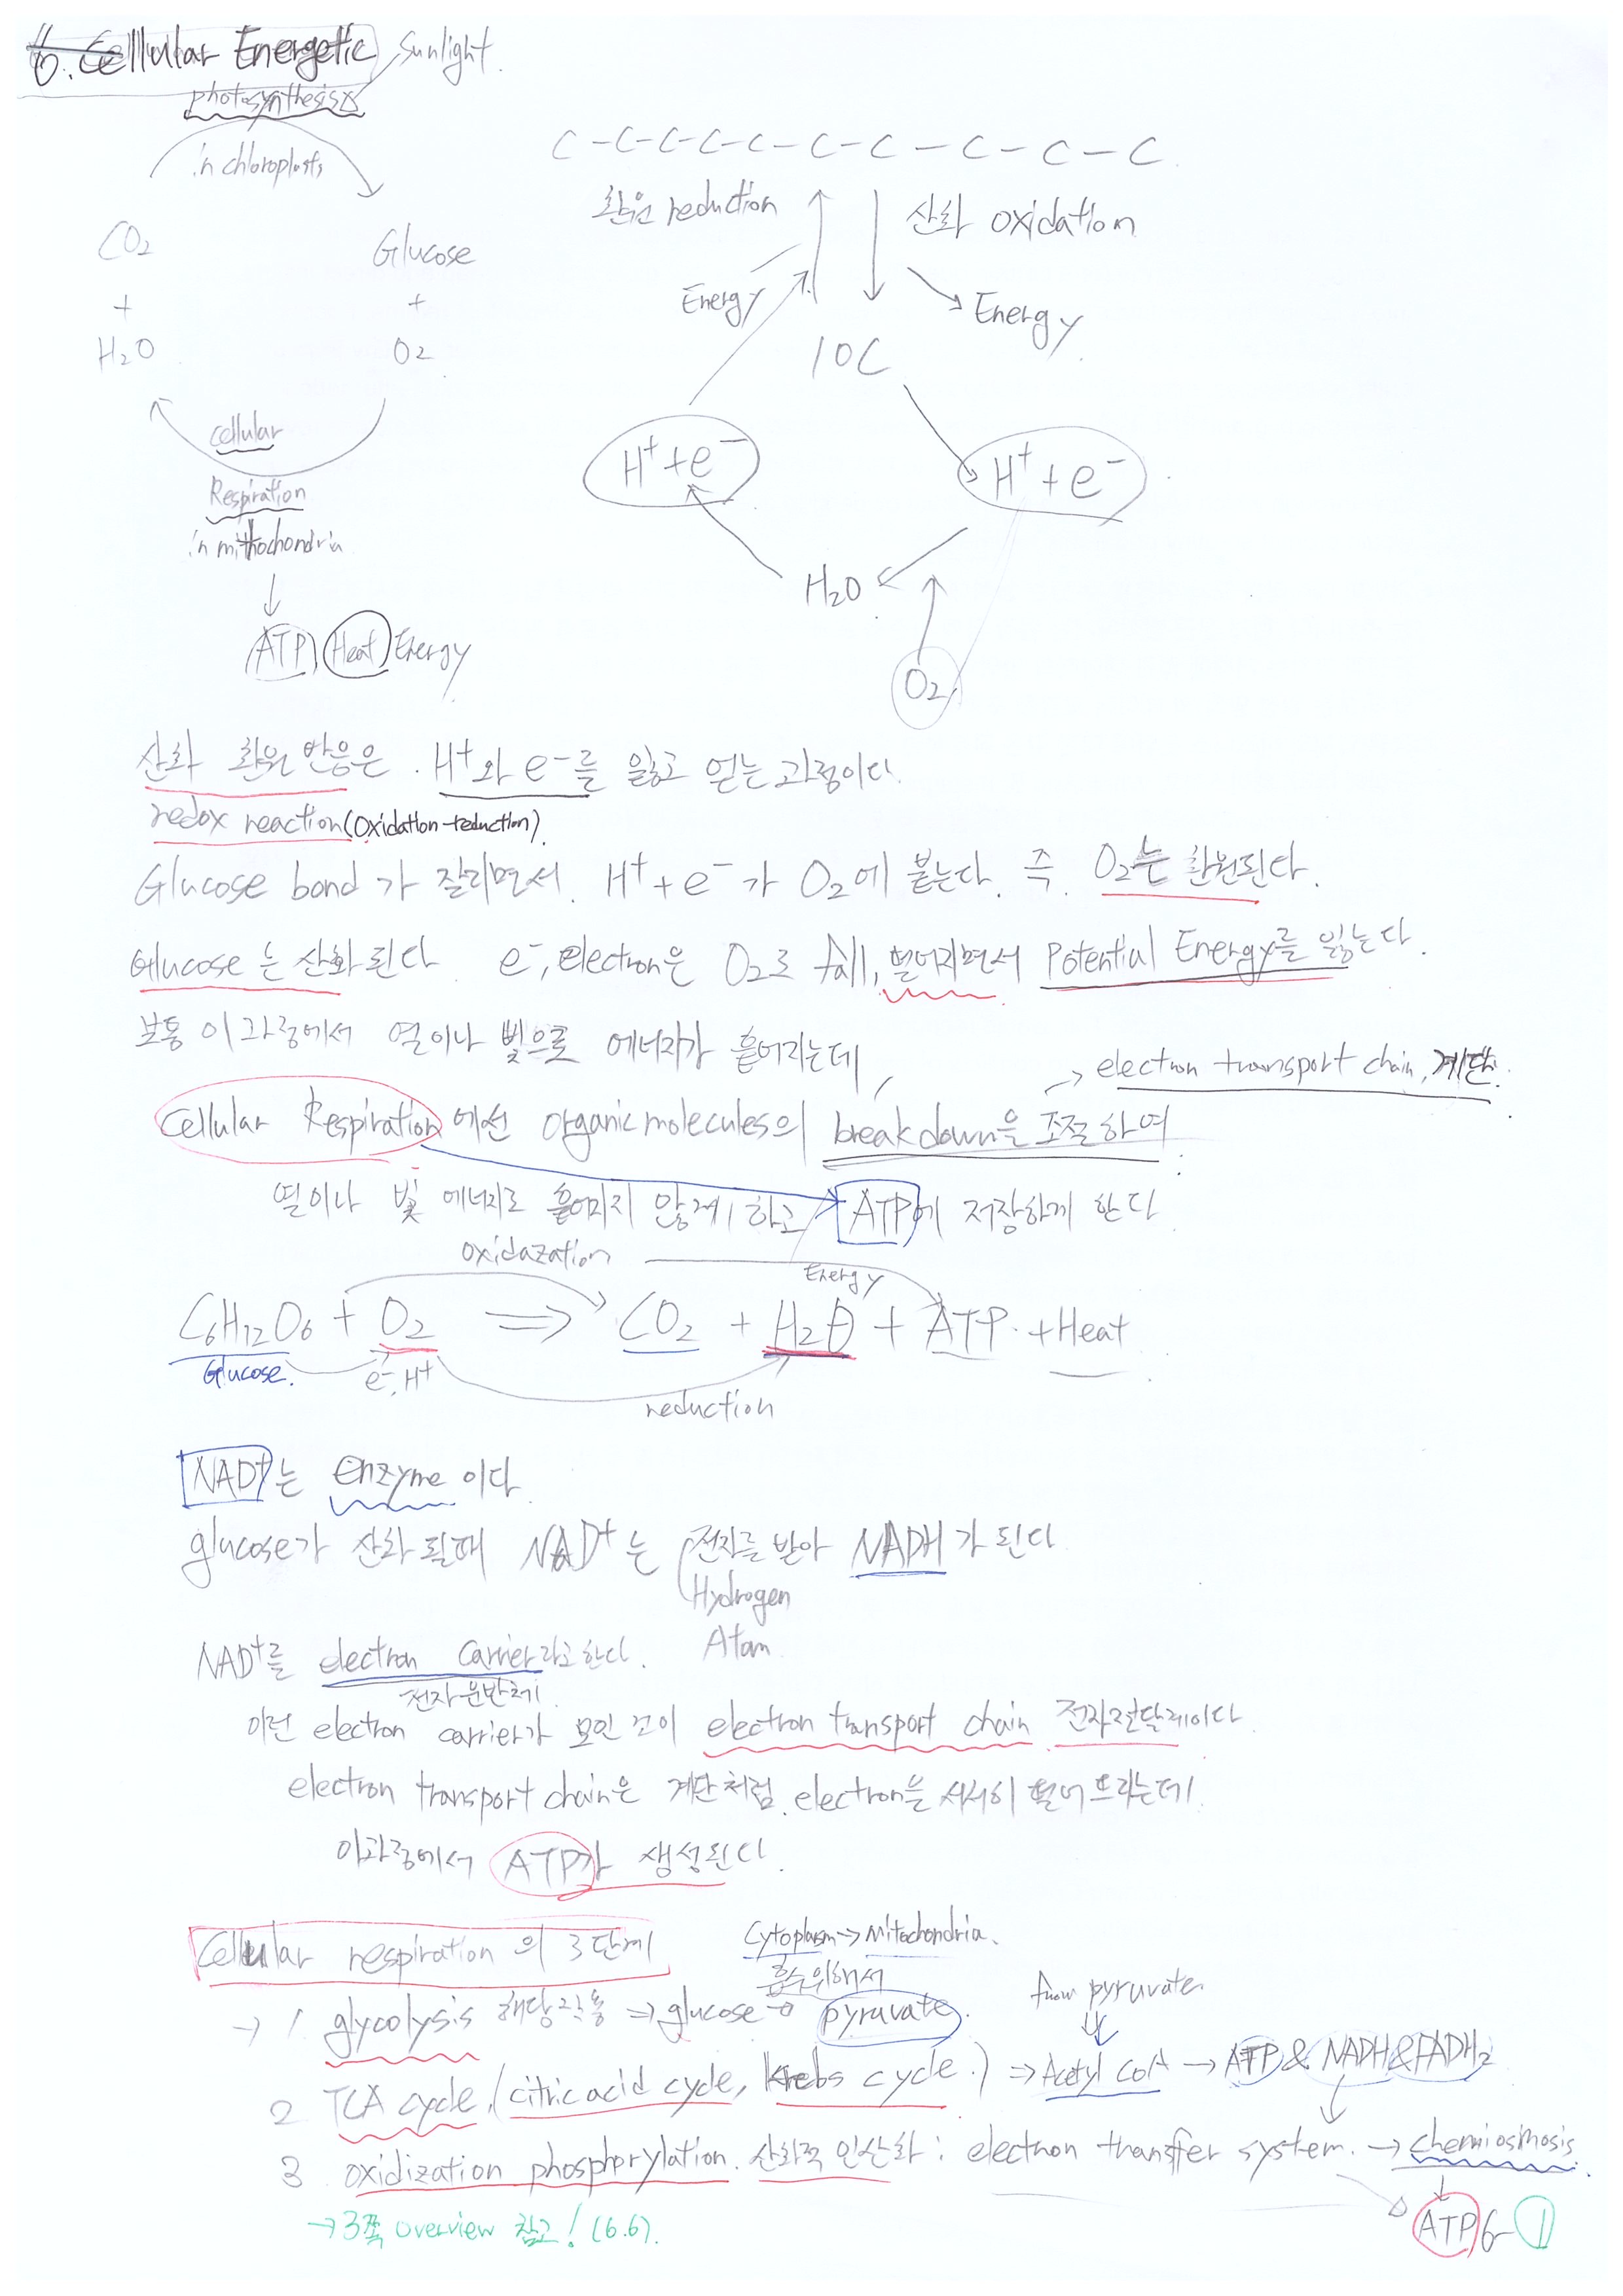 6. Cellular Energetic
Sunlight.
photosynthesis
in chloroplasts
CO2
+
H2O
Glucose
+
O2
cellular
Respiration
in mithochondria
ATP Heat Energy
C-C-C-C-C-C-C-C-C-C
환원 reduction
산화 oxidation
Energy
Energy
10C
H+ + e-
H+ + e-
H2O
O2
산화 환원 반응은 H+와 e-를 잃고 얻는 과정이다.
redox reaction(oxidation-reduction)
Glucose bond가 잘리면서 H+ + e-가 O2에 붙는다. 즉. O2는 환원된다.
Glucose는 산화된다. e-, electron은 O2로 fall, 떨어지면서 potential Energy를 잃는다.
보통 이 과정에서 열이나 빛으로 에너지가 흩어지는데,
→ electron transport chain, 계단.
Cellular Respiration에선 organic molecules의 breakdown을 조절하여
열이나 빛 에너지로 흩어지지 않게 하고 ATP에 저장하게 한다
oxidazation
Energy
C6H12O6 + O2 ⇒ CO2 + H2O + ATP + Heat
Glucose.
e-, H+
reduction
NAD+는 enzyme이다.
glucose가 산화 될때 NAD+는 전자를 받아 NADH가 된다.
Hydrogen
Atom
NAD+를 electron carrier라고한다.
전자운반체
이런 electron carrier가 모인 것이 electron transport chain 전자전달계이다.
electron transport chain은 계단처럼 electron을 서서히 떨어뜨리는데
이과정에서 ATP가 생성된다.
Cellular respiration의 3단계
Cytoplasm → Mitochondria.
흡수위해서
→ 1. glycolysis 해당작용 ⇒ glucose → pyruvate.
from pyruvate
2 TCA cycle, (citric acid cycle, krebs cycle.) ⇒ Acetyl CoA → ATP & NADH & FADH2
3 oxidization phosphorylation. 산화적 인산화 : electron transfer system. → chemiosmosis.
ATP
→ 3쪽 overview 참고! (6.6).
6-1